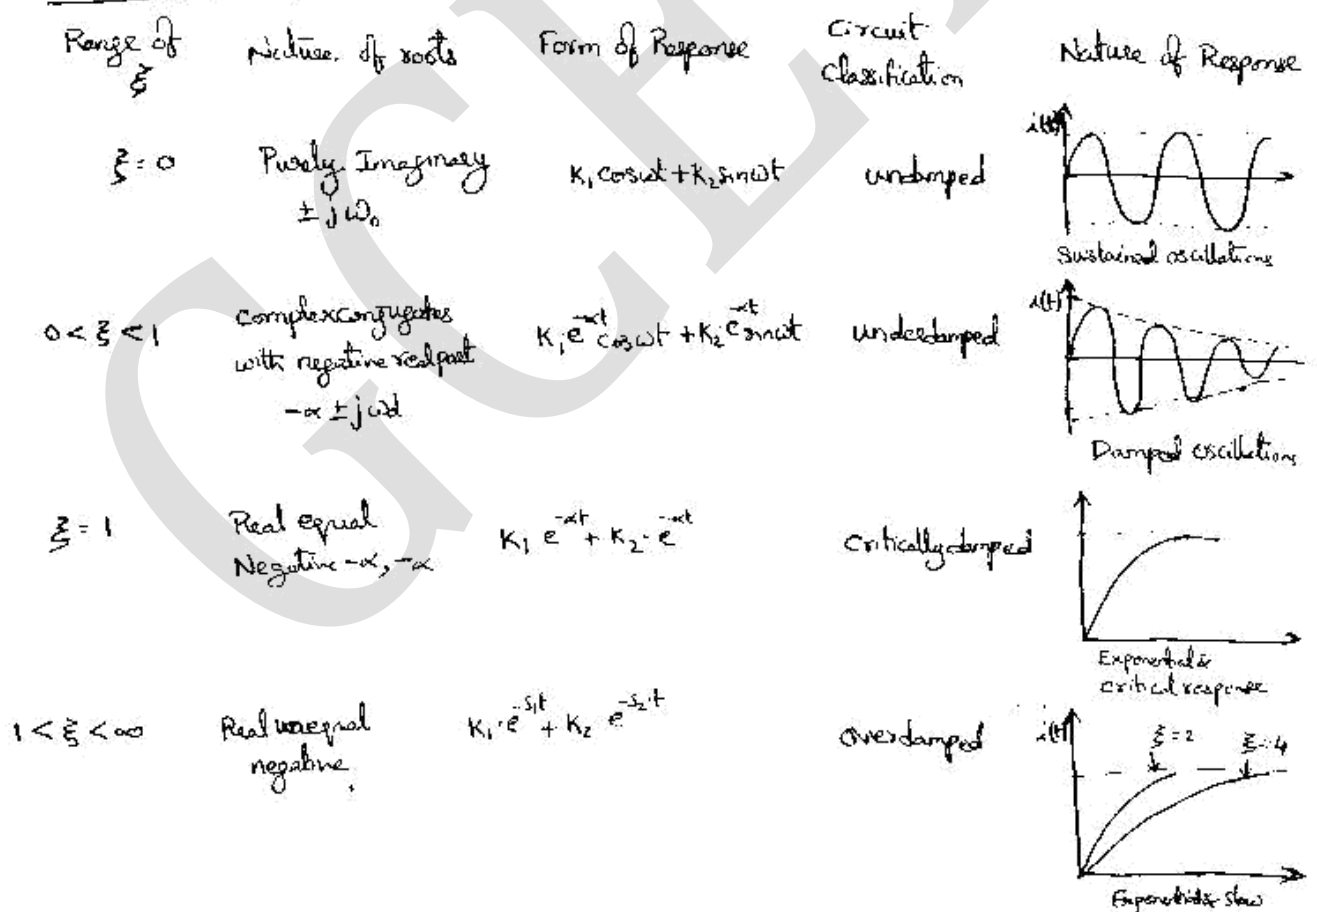 Range of ξ
Nature of roots
Form of Response
Circuit Classification
Nature of Response
ξ = 0
Purely Imaginary
± jω₀
K₁ cosωt + K₂ sinωt
undamped
i(t)
Sustained oscillations
0 < ξ < 1
complex conjugates
with negative real part
-α ± jωd
K₁ e^-αt cosωt + K₂ e^-αt sinωt
underdamped
i(t)
Damped oscillations
ξ = 1
Real equal
Negative -α, -α
K₁ e^-αt + K₂ · e^-αt
Critically damped
Exponential &
critical response
1 < ξ < ∞
Real unequal
negative
K₁ · e^-s₁t + K₂ e^-s₂·t
Overdamped
i(t)
ξ = 2
ξ = 4
Exponential & slow
GCE